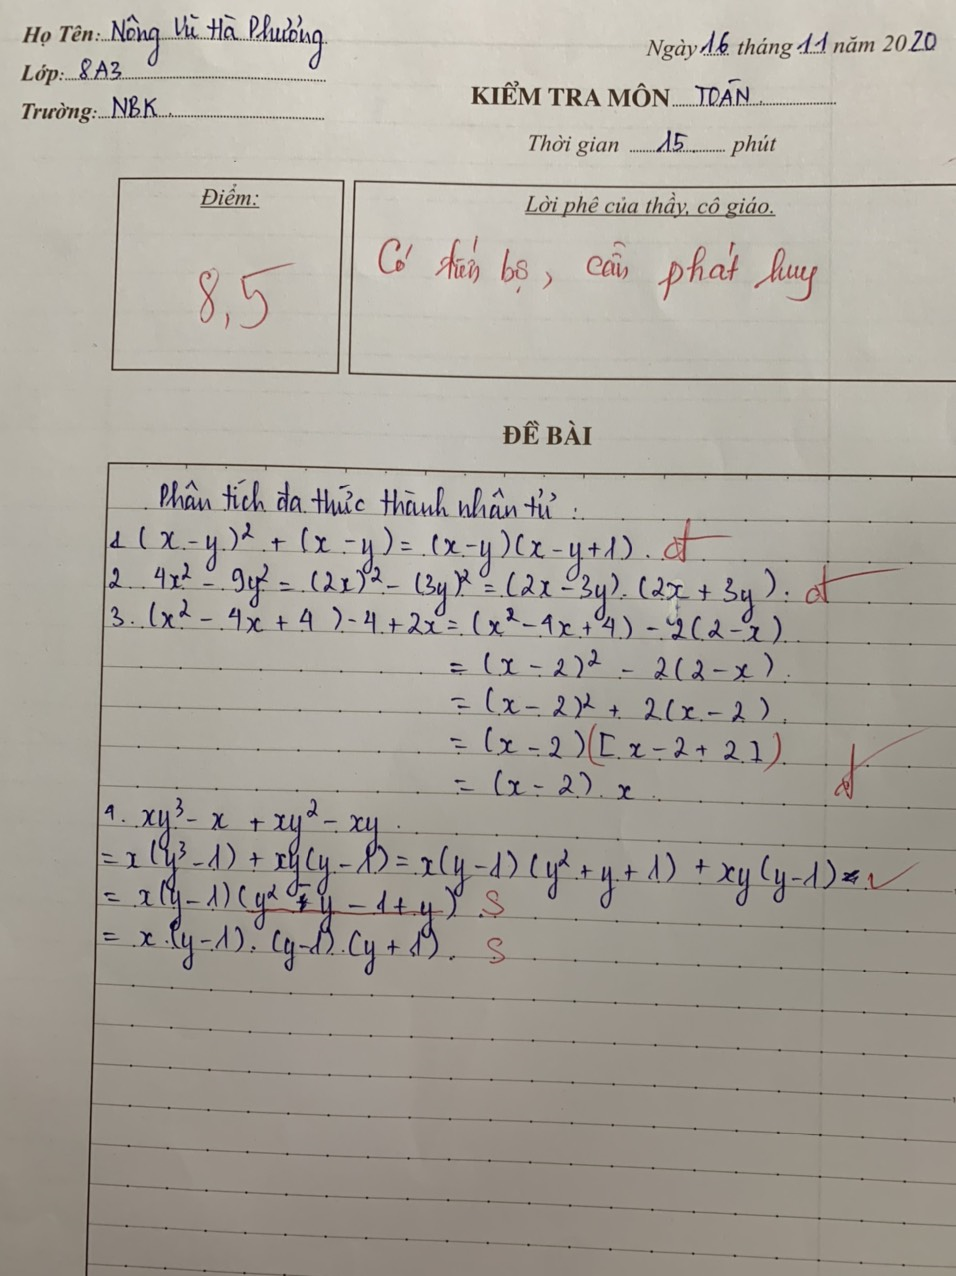 Họ Tên: Nông Vũ Hà Phương
Ngày 16 tháng 11 năm 2020
Lớp: 8A3
KIỂM TRA MÔN TOÁN
Trường: NBK
Thời gian 15 phút
Điểm:
Lời phê của thầy, cô giáo.
8,5
Có tiến bộ, cần phát huy
ĐỀ BÀI
Phân tích đa thức thành nhân tử:
1. (x-y)² + (x-y) = (x-y)(x-y+1). đ
2. 4x² - 9y² = (2x)² - (3y)² = (2x-3y).(2x+3y). đ
3. (x² - 4x + 4) - 4 + 2x = (x² - 4x + 4) - 2(2-x)
= (x-2)² - 2(2-x).
= (x-2)² + 2(x-2).
= (x-2)([x-2+2])
= (x-2).x. đ
4. xy³ - x + xy² - xy.
= x(y³-1) + xy(y-1) = x(y-1)(y²+y+1) + xy(y-1)
= x(y-1)(y² + y - 1 + y) S
= x.(y-1).(y-1).(y+1). S